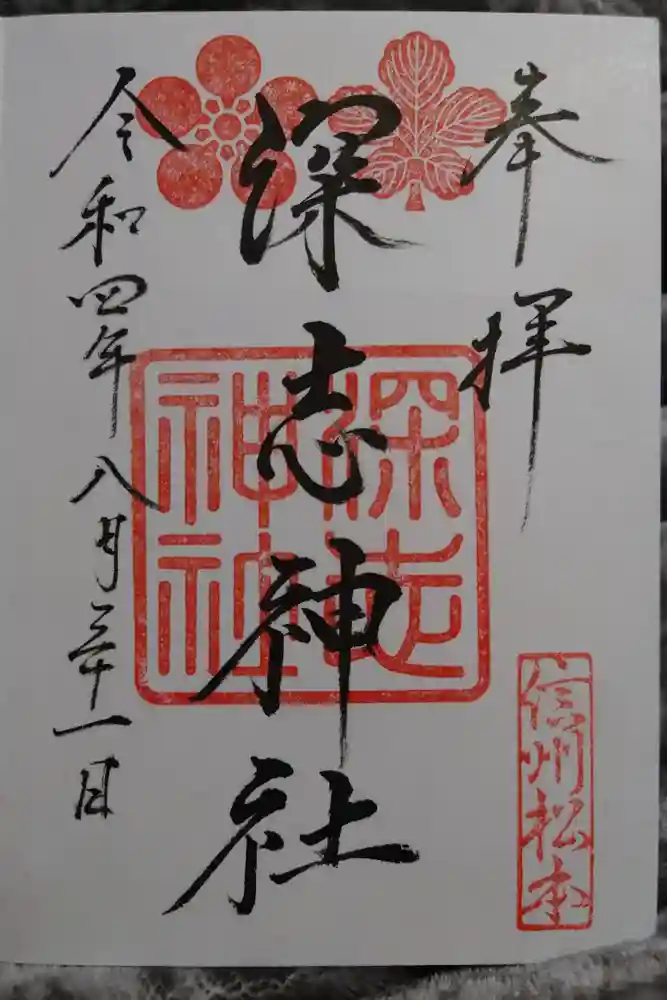 奉拝
信州松本
深志神社
深志
神社
令和四年八月三十一日